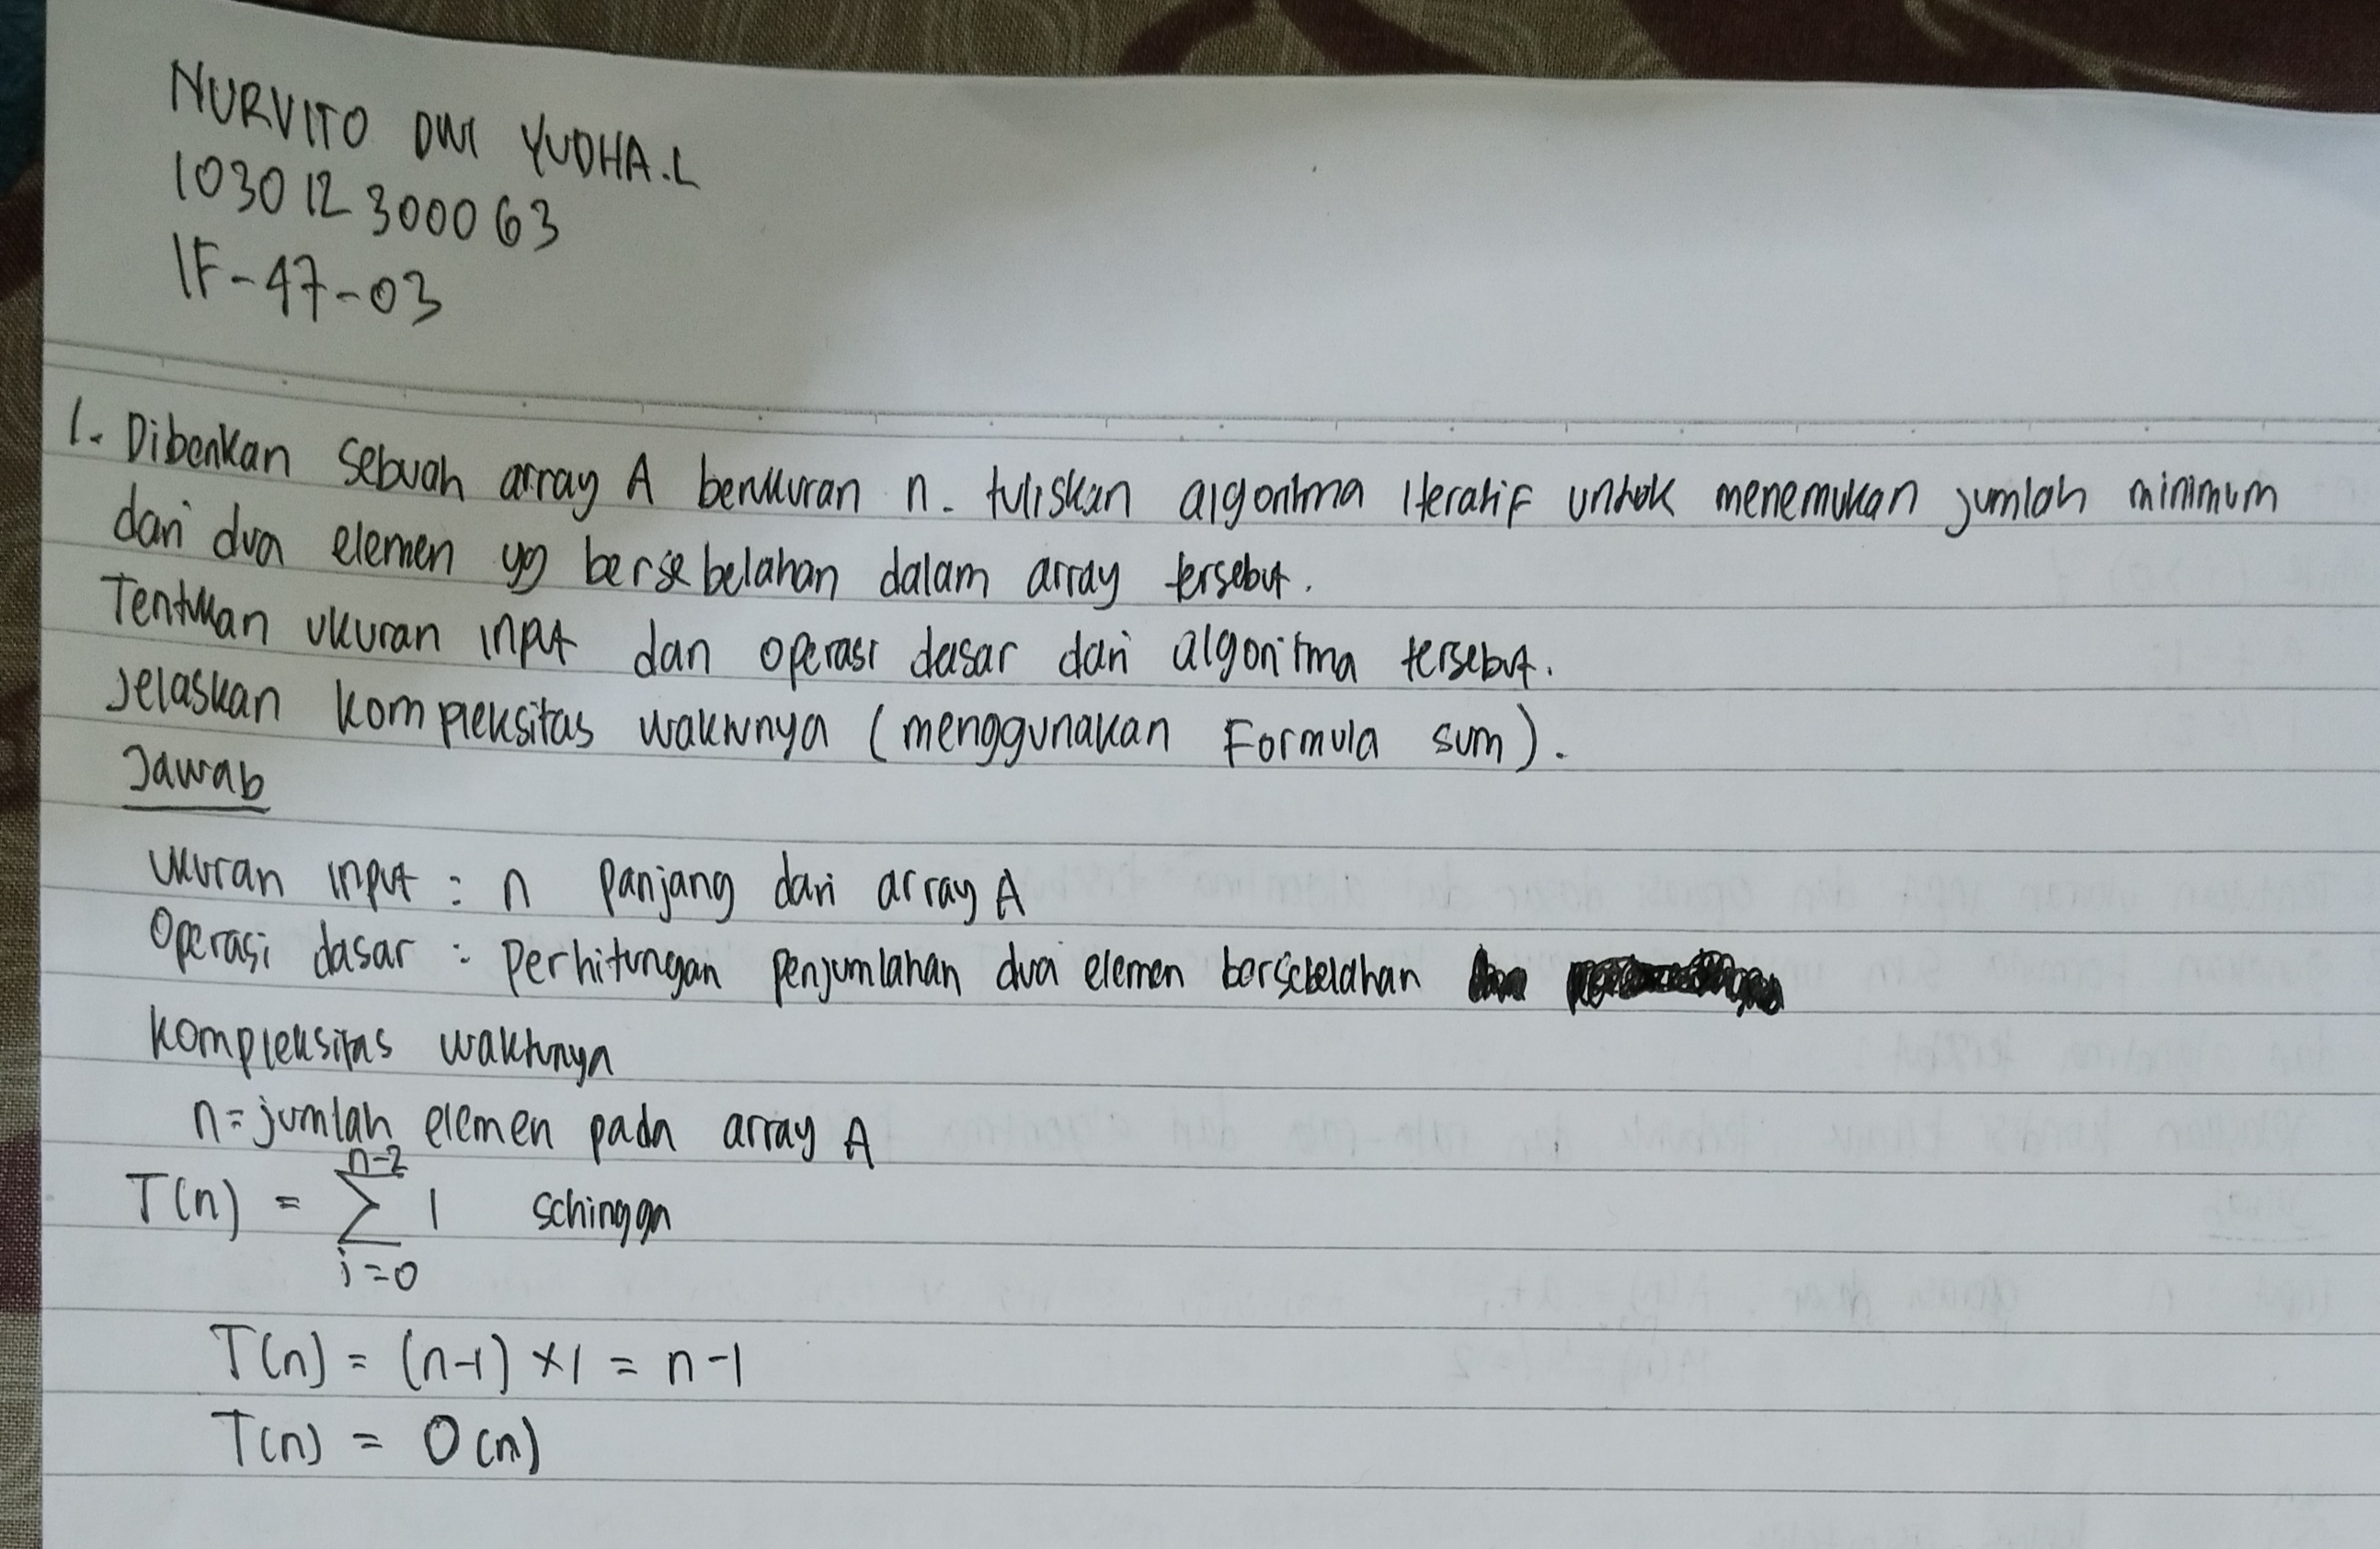 NURVITO DWI YUDHA.L
103012300063
IF-47-03
1. Diberikan sebuah array A berukuran n. tuliskan algoritma iteratif untuk menemukan jumlah minimum
dari dua elemen yg bersebelahan dalam array tersebut.
Tentukan ukuran input dan operasi dasar dari algoritma tersebut.
Jelaskan kompleksitas waktunya (menggunakan Formula sum).
Jawab
Ukuran input : n panjang dari array A
Operasi dasar : Perhitungan penjumlahan dua elemen bersebelahan
Kompleksitas waktunya
n = jumlah elemen pada array A
n-2
T(n) = Σ 1 sehingga
i=0
T(n) = (n-1) × 1 = n-1
T(n) = O(n)